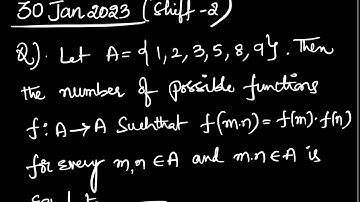 30 Jan 2023 (Shift-2)
Q). Let A = {1, 2, 3, 5, 8, 9}. Then
the number of possible functions
f: A→A Such that f(m.n) = f(m).f(n)
for every m,n ∈ A and m.n ∈ A is